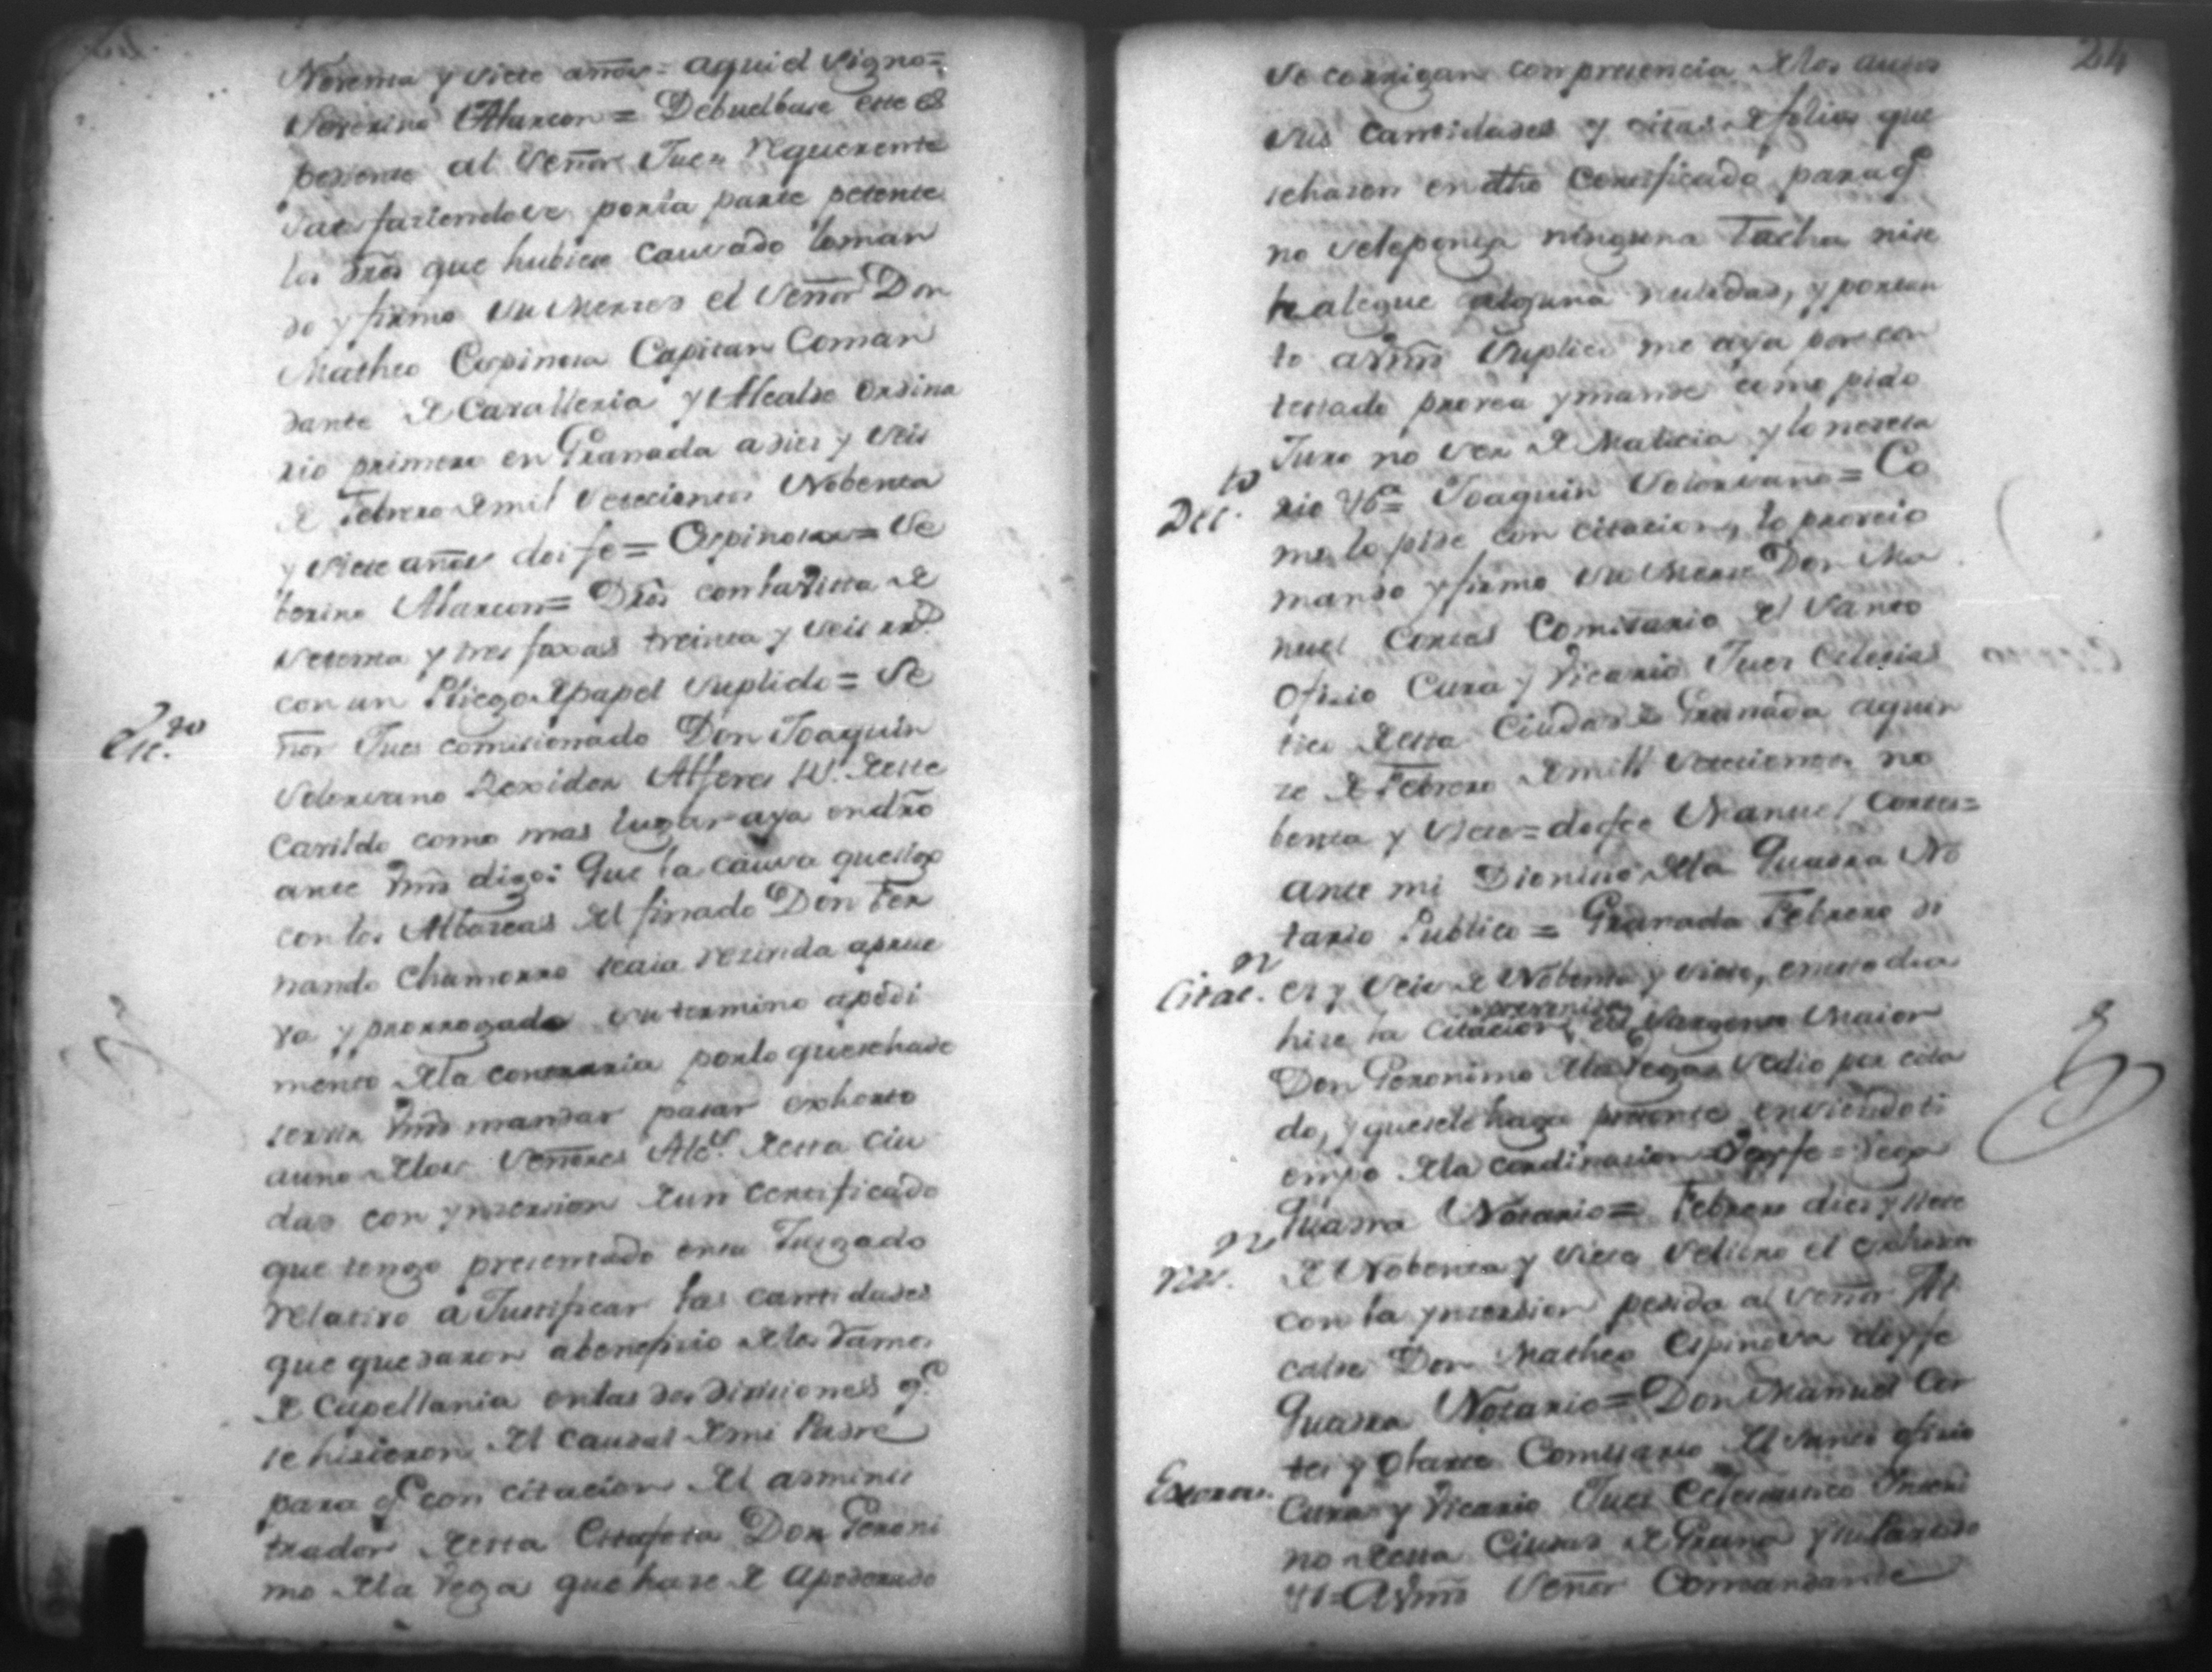 Noventa y siete años = aqui el signo =
Severino Alarcon = Debuelbase este es
pediente al Señor Juez requerente
satisfaciendose por la parte petente
los dros que hubiere causado lo man
do y firmo su Merced el Señor Don
Matheo Espinosa Capitan Coman
dante de Cavalleria y Alcalde ordina
rio primero en Granada a dies y seis
de Febrero de mil setecientos Nobenta
y siete años doi fe = Espinosa = Se
berino Alarcon = Dros con la vista de
setenta y tres foxas treinta y seis rrs
con un Pliego de papel suplido = Se
Esc.to
ñor Jues comicionado Don Joaquin
Solorsano Rexidor Alferes Rl. de este
Cavildo como mas lugar aya en dro
ante Vmd digo: Que la causa que sigo
con los Albaceas del finado Don Fer
nando Chamorro se aia resivida a prue
va y prorrogado su termino a pedi
mento de la contraria por lo que se ha de
servir Vmd mandar pasar exhorto
a uno de los Señores Alc.s de esta Ciu
dad con ynsersion de un certificado
que tengo presentado en su Jusgado
relativo a Justificar las cantidades
que quedaron a beneficio de los ramos
de Capellania en las dos divisiones q.e
se hisieron del caudal de mi Padre
para q.e con citacion del adminis
trador de esta Estafeta Don Geroni
mo de la Vega que hase de Apoderado
24
se corrigan con presencia de los autos
sus cantidades y citas de folios que
se hasen en dho Certificado para q.e
no se le ponga ninguna Tacha ni se
le alegue alguna nulidad, y por tan
to a Vmd Suplico me aya por con
testado provea y mande como pido
Juro no ser de Malicia y lo necesa
Dec.to
rio &a Joaquin Solorsano = Co
mo lo pide con citacion, lo proveio
mando y firmo su Merced Don Ma
nuel Cortes Comisario del Santo
Ofisio Cura y Vicario Jues Eclesias
tico de esta Ciudad de Granada a quin
ze de Febrero de mill setecientos no
benta y siete = doyfee Manuel Cortes =
ante mi Dionisio de la Quadra No
tario Publico = Granada Febrero di
Citac.n
es y seis de Nobenta y siete, en este dia
prevenida
hise la citacion al Sargento Maior
Don Geronimo de la Vega se dio por cita
do, y que se le haga presente en siendo ti
empo de la cordinacion Doyfe = Vega
Quadra Notario = Febrero dies y siete
n
de Nobenta y siete se libro el exhorto
con la ynsersion pedida al Señor Al
calde Don Matheo Espinosa doyfe
Quadra Notario = Don Manuel Cor
tes y Obando Comisario del Santo ofisio
Exhorto.
Cura y Vicario Jues Eclesiastico Interi
no de esta Ciudad de Grana y su Partido
&a = A Vmd Señor Comandante